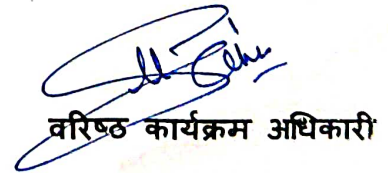 वरिष्ठ कार्यक्रम अधिकारी